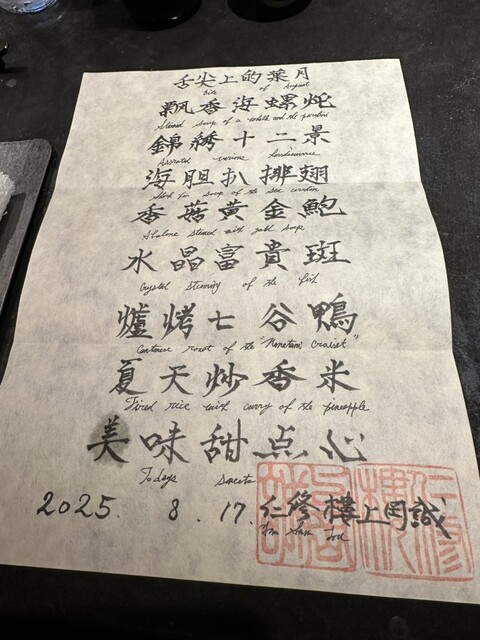 舌尖上的葉月
Bite of August
飄香海螺炖
Steamed soup of a whelk and the
錦綉十二景
Assorted various
海胆扒排翅
Shark fin soup of the sea urchin
香菇黄金鮑
Abalone stewed with gold soup
水晶富貴斑
Crystal steaming of the fish
爐烤七谷鴨
Cantonese roast of the
夏天炒香米
Fried rice with curry of the pineapple
美味甜点心
Todays sweets
2025. 8. 17. 仁修樓上岡誠